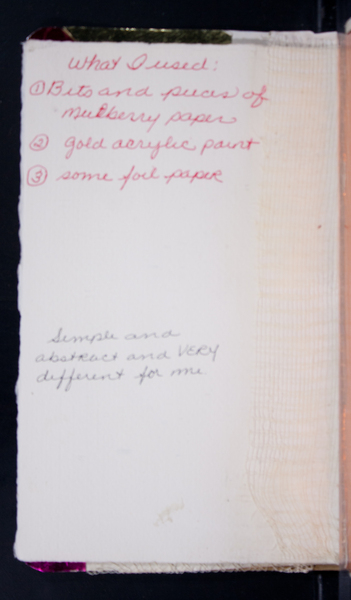 What I used:
① Bits and pieces of
mulberry paper
② gold acrylic paint
③ some foil paper
Simple and
abstract and VERY
different for me